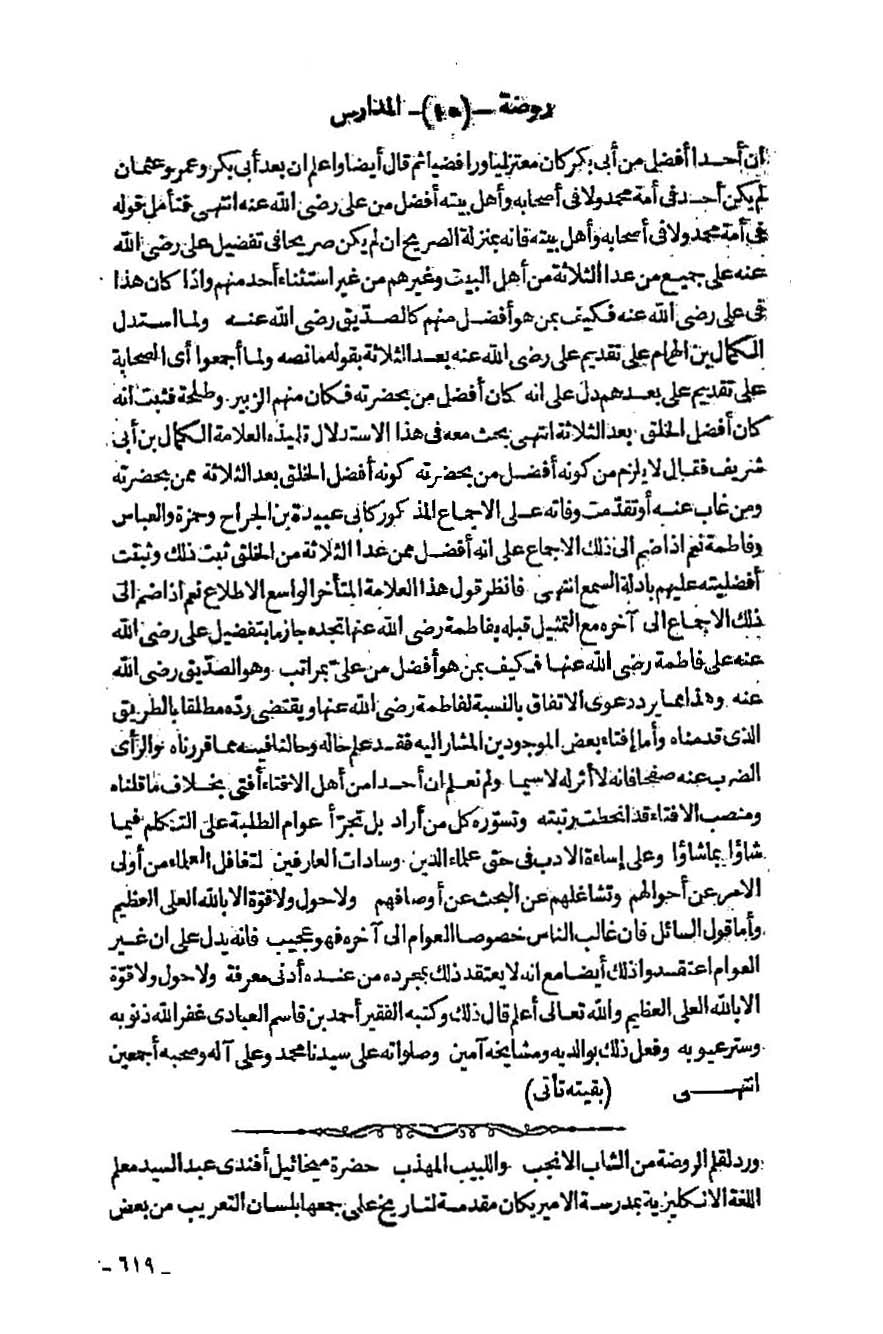 روضة -(١٥)- المدارس
أن أحدا أفضل من أبى بكر كان معتزليا ورافضيا ثم قال أيضا واعلم ان بعد أبى بكر وعمر وعثمان
لم يكن أحد فى أمة محمد ولا فى أصحابه وأهل بيته أفضل من على رضى الله عنه انتهى فتأمل قوله
فى أمة محمد ولا فى أصحابه وأهل بيته فانه بمنزلة الصريح ان لم يكن صريحا فى تفضيل على رضى الله
عنه على جميع من عدا الثلاثة من أهل البيت وغيرهم من غير استثناء أحد منهم واذا كان هذا
فى على رضى الله عنه فكيف بمن هو أفضل منهم كالصديق رضى الله عنه ولما استدل
الكمال بن الهمام على تقديم على رضى الله عنه بعد الثلاثة بقوله ما نصه ولما أجمعوا أى الصحابة
على تقديم على بعدهم دل على انه كان أفضل من بحضرته فكان منهم الزبير وطلحة فثبت انه
كان أفضل الخلق بعد الثلاثة انتهى بحث معه فى هذا الاستدلال تلميذه العلامة الكمال بن أبى
شريف فقال لا يلزم من كونه أفضل من بحضرته كونه أفضل الخلق بعد الثلاثة ممن بحضرته
ومن غاب عنه أو تقدّمت وفاته على الاجماع المذكور كأبى عبيدة بن الجراح وحمزة والعباس
وفاطمة نعم اذا ضم الى ذلك الاجماع على انه أفضل ممن عدا الثلاثة من الخلق ثبت ذلك وثبتت
أفضليته عليهم بادلة السمع انتهى فانظر قول هذا العلامة المتأخر الواسع الاطلاع نعم اذا ضم الى
ذلك الاجماع الى آخره مع التمثيل قبله بفاطمة رضى الله عنها تجده جازما بتفضيل على رضى الله
عنه على فاطمة رضى الله عنها فكيف بمن هو أفضل من علىّ بمراتب وهو الصدّيق رضى الله
عنه وهذا مما يرد دعوى الاتفاق بالنسبة لفاطمة رضى الله عنها ويقتضى ردّه مطلقا بالطريق
الذى قدمناه وأما افتاء بعض الموجودين المشار اليه فقد علم حاله وحالنا فيه مما قررناه والرأى
الضرب عنه صفحا فانه لا أثر له لا سيما ولم نعلم ان أحدا من أهل الافتاء أفتى بخلاف ما قلناه
ومنصب الافتاء قد انحطت رتبته وتسوّره كل من أراد بل تجرّأ عوام الطلبة على التكلم فيما
شاؤا بما شاؤا وعلى إساءة الادب فى حق علماء الدين وسادات العارفين لتغافل العلماء من أولى
الامر عن أحوالهم وتشاغلهم عن البحث عن أوصافهم ولا حول ولا قوّة الا بالله العلى العظيم
وأما قول السائل فان غالب الناس خصوصا العوام الى آخره فهو عجيب فانه يدل على ان غير
العوام اعتقدوا ذلك أيضا مع انه لا يعتقد ذلك بمجرده من عنده أدنى معرفة ولا حول ولا قوّة
الا بالله العلى العظيم والله تعالى أعلم قال ذلك وكتبه الفقير أحمد بن قاسم العبادى غفر الله ذنوبه
وستر عيوبه وفعل ذلك بوالديه ومشايخه آمين وصلواته على سيدنا محمد وعلى آله وصحبه أجمعين
انتهــى (بقيته تأتى)
ورد لقلم الروضة من الشاب الانجب واللبيب المهذب حضرة ميخائيل أفندى عبد السيد معلم
اللغة الانكليزية بمدرسة الاميريكان مقدمة لتاريخ على جمعها بلسان التعريب من بعض
- ٦١٩ -